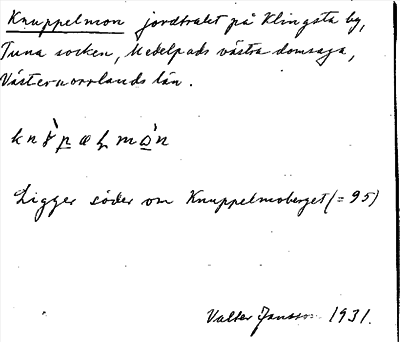 Knuppelmon jordtrakt på Klingsta by,
Tuna socken, Medelpads västra domsaga,
Västernorrlands län.
Ligger söder om Knuppelmoberget (= 95)
Valter Jansson 1931.